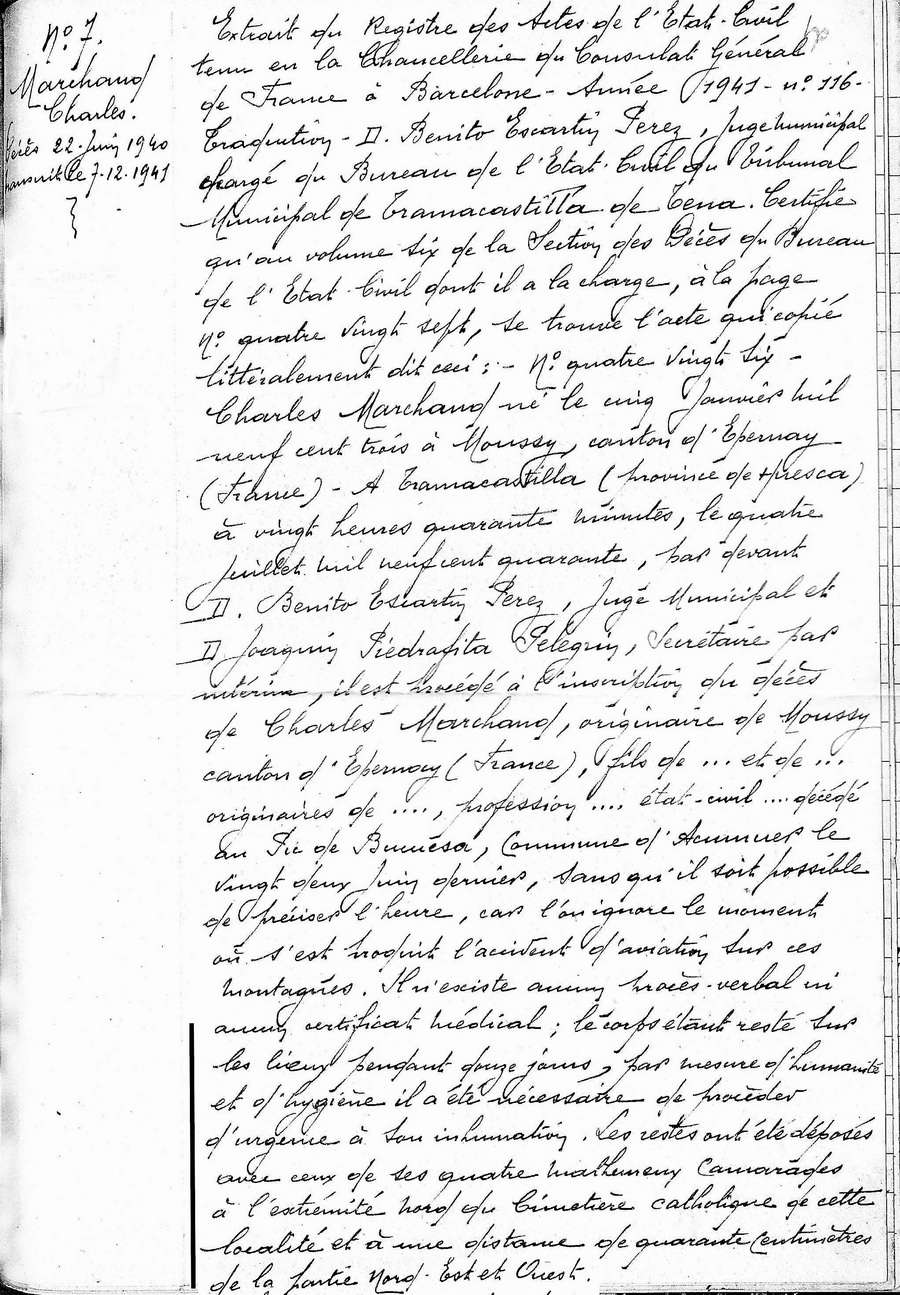 N° 7.
Marchand
Charles.
Décès 22 Juin 1940
transcrit le 7.12.1941
Extrait du Registre des Actes de l'Etat-Civil
tenu en la Chancellerie du Consulat Général
de France à Barcelone - Année 1941 - n° 116 -
Traduction - D. Benito Escartin Perez, Juge municipal
chargé du Bureau de l'Etat-Civil du Tribunal
Municipal de Tramacastilla de Tena. Certifie
qu'au volume six de la Section des Décès du Bureau
de l'Etat-Civil dont il a la charge, à la page
N° quatre vingt sept, se trouve l'acte qui copié
littéralement dit ceci : - N° quatre vingt six -
Charles Marchand né le cinq Janvier mil
neuf cent trois à Moussy, canton d'Epernay
(France) - A Tramacastilla (province de Huesca)
à vingt heures quarante minutes, le quatre
Juillet mil neuf cent quarante, par devant
D. Benito Escartin Perez, Juge Municipal et
D. Joaquin Piedrafita Pelegrin, Secrétaire par
intérim, il est procédé à l'inscription du décès
de Charles Marchand, originaire de Moussy
canton d'Epernay (France), fils de ... et de ...
originaires de ...., profession .... état-civil .... décédé
au Pic de Bucuesa, Commune d'Acumuer le
vingt deux Juin dernier, sans qu'il soit possible
de préciser l'heure, car l'on ignore le moment
où s'est produit l'accident d'aviation sur ces
montagnes. Il n'existe aucun procès-verbal ni
aucun certificat médical ; le corps étant resté sur
les lieux pendant douze jours, par mesure d'humanité
et d'hygiène il a été nécessaire de procéder
d'urgence à son inhumation. Les restes ont été déposés
avec ceux de ses quatre malheureux Camarades
à l'extrémité Nord du Cimetière catholique de cette
localité et à une distance de quarante Centimètres
de la partie Nord-Est et Ouest.